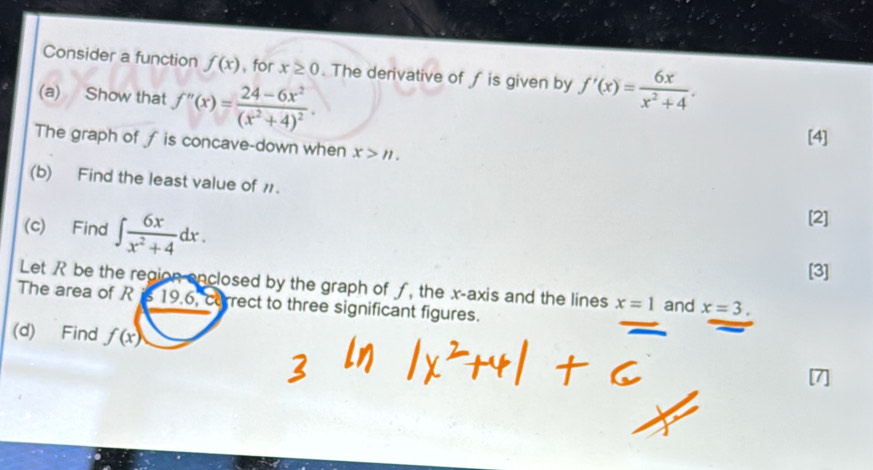 Consider a function f(x), for x ≥ 0. The derivative of f is given by f'(x) = 6x / (x² + 4).
(a) Show that f''(x) = (24 − 6x²) / (x² + 4)².
[4]
The graph of f is concave-down when x > n.
(b) Find the least value of n.
[2]
(c) Find ∫ 6x / (x² + 4) dx.
[3]
Let R be the region enclosed by the graph of f, the x-axis and the lines x = 1 and x = 3.
The area of R is 19.6, correct to three significant figures.
(d) Find f(x)
[7]
3 ln |x²+4| + C